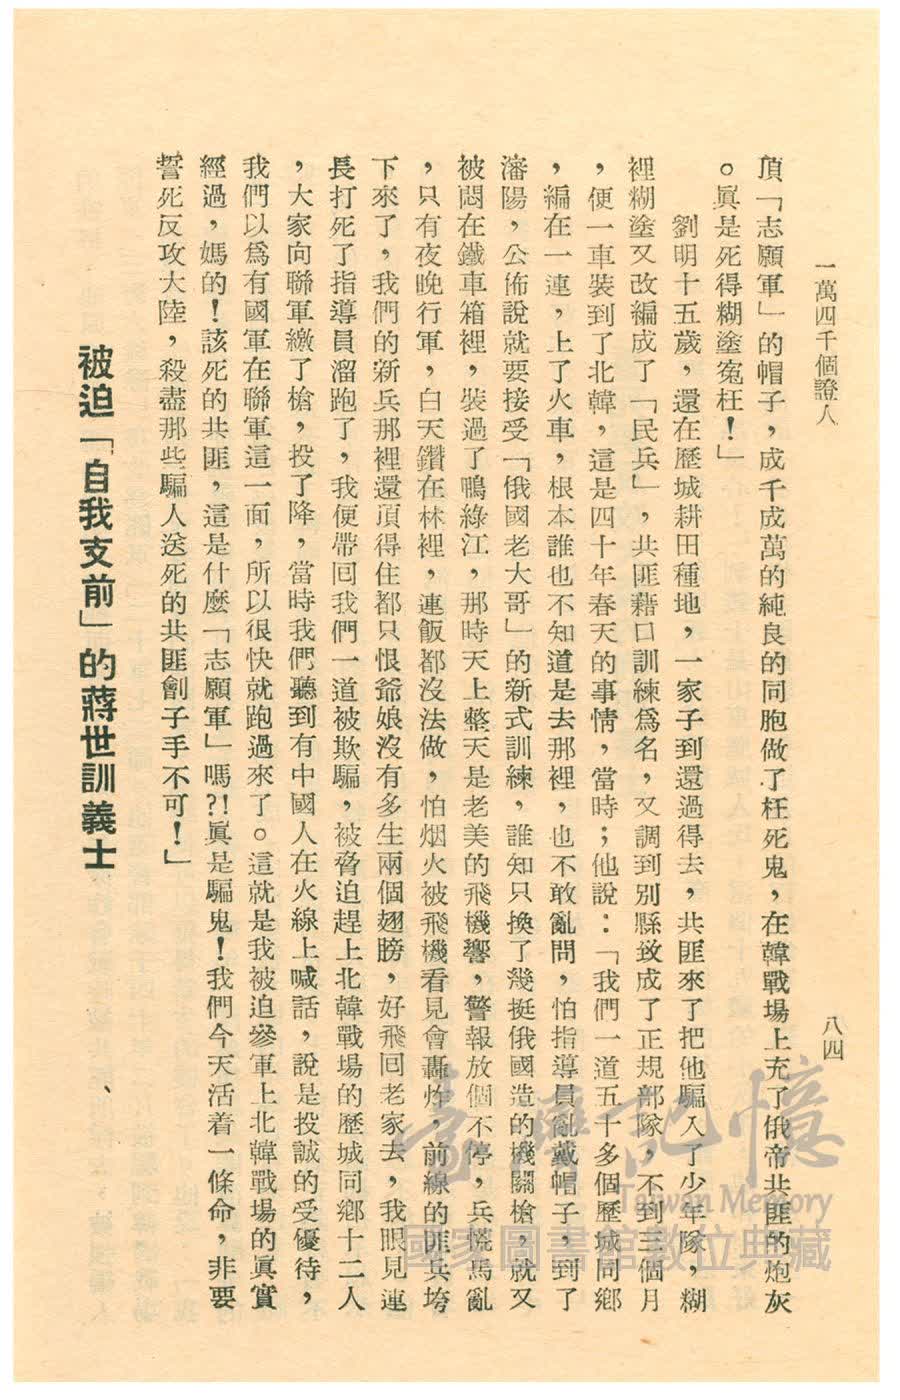 一萬四千個證人
八四
頂「志願軍」的帽子，成千成萬的純良的同胞做了枉死鬼，在韓戰場上充了俄帝共匪的炮灰
。眞是死得糊塗寃枉！」
劉明十五歲，還在歷城耕田種地，一家子到還過得去，共匪來了把他騙入了少年隊，糊
裡糊塗又改編成了「民兵」，共匪藉口訓練爲名，又調到別縣致成了正規部隊，不到三個月
，便一車裝到了北韓，這是四十年春天的事情，當時；他說：「我們一道五十多個歷城同鄉
，編在一連，上了火車，根本誰也不知道是去那裡，也不敢亂問，怕指導員亂戴帽子，到了
瀋陽，公佈說就要接受「俄國老大哥」的新式訓練，誰知只換了幾挺俄國造的機關槍，就又
被悶在鐵車箱裡，裝過了鴨綠江，那時天上整天是老美的飛機響，警報放個不停，兵慌馬亂
，只有夜晚行軍，白天鑽在林裡，連飯都沒法做，怕烟火被飛機看見會轟炸，前線的匪兵垮
下來了，我們的新兵那裡還頂得住都只恨爺娘沒有多生兩個翅膀，好飛回老家去，我眼見連
長打死了指導員溜跑了，我便帶回我們一道被欺騙，被脅迫趕上北韓戰場的歷城同鄉十二人
，大家向聯軍繳了槍，投了降，當時我們聽到有中國人在火線上喊話，說是投誠的受優待，
我們以爲有國軍在聯軍這一面，所以很快就跑過來了。這就是我被迫參軍上北韓戰場的眞實
經過，媽的！該死的共匪，這是什麼「志願軍」嗎?!眞是騙鬼！我們今天活着一條命，非要
誓死反攻大陸，殺盡那些騙人送死的共匪劊子手不可！」
被迫「自我支前」的蔣世訓義士
臺灣記憶
Taiwan Memory
國家圖書館數位典藏